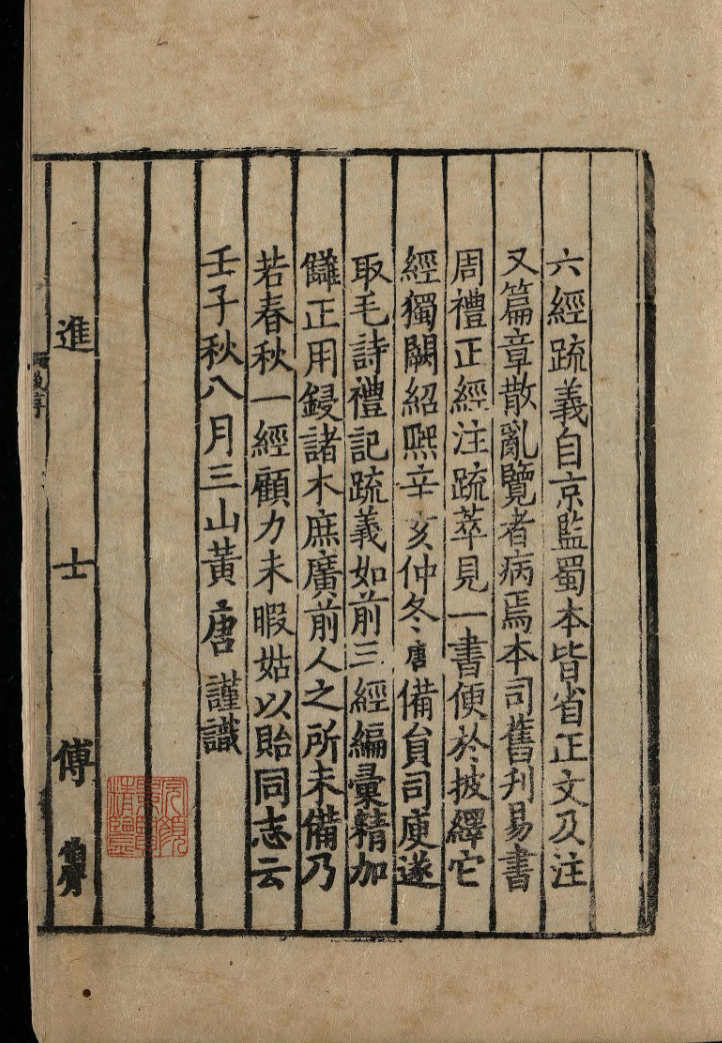 六經疏義自京監蜀本皆省正文及注
又篇章散亂覽者病焉本司舊刋易書
周禮正經注疏萃見一書便於披繹它
經獨闕紹熈辛亥仲冬唐備貟司庾遂
取毛詩禮記疏義如前三經編彚精加
讎正用鋟諸木庶廣前人之所未備乃
若春秋一經顧力未暇姑以貽同志云
壬子秋八月三山黃唐謹識
進士傅